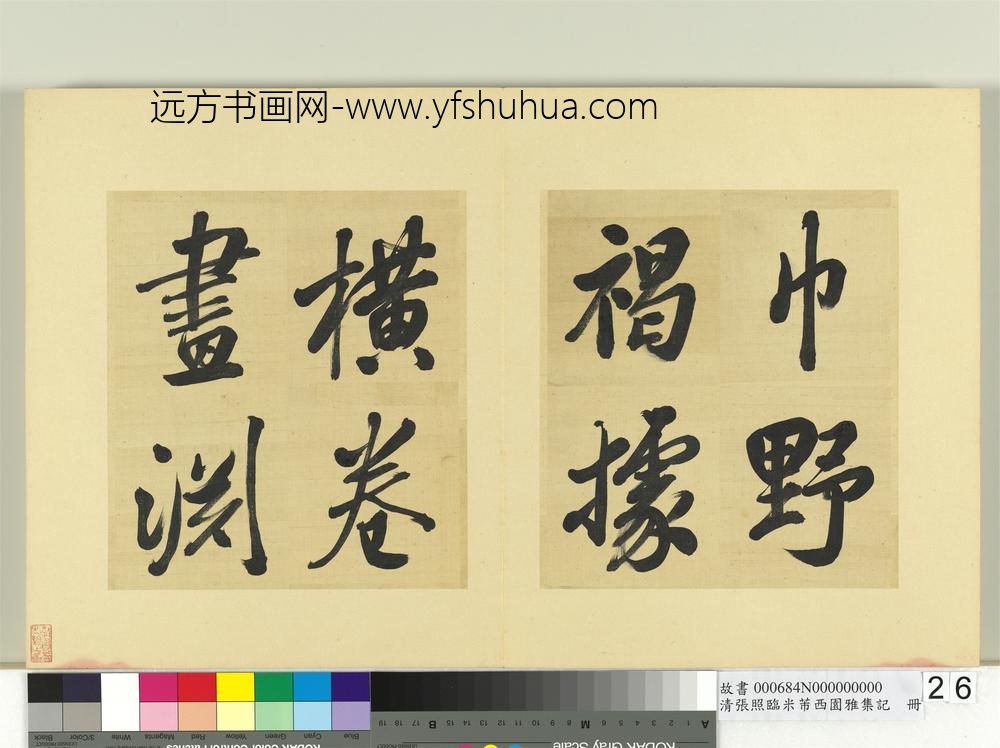 远方书画网-www.yfshuhua.com
巾野
褐據
橫卷
畫淵
故書 000684N000000000
清張照臨米芾西園雅集記 冊
26
Black
3/Color
White
Magenta
Red
Yellow
Green
Cyan
Blue
19 18 17 B 15 14 13 12 11 10 9 8 M 6 5 4 3 2 1 A
KODAK Color Control Patches
KODAK Gray Scale